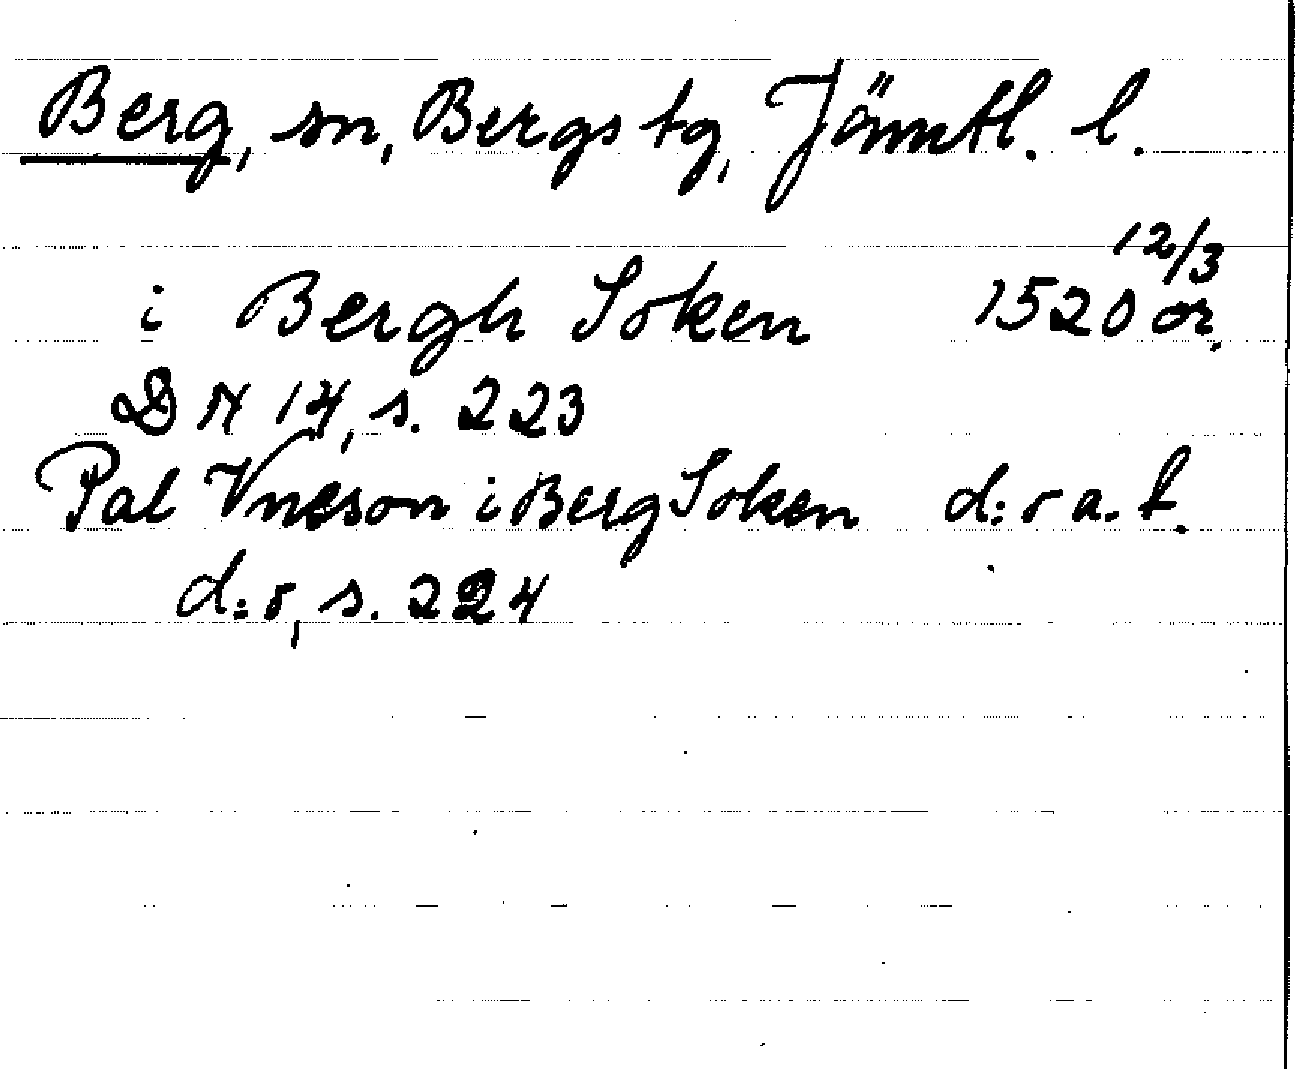 Berg, sn, Bergs tg, Jämtl. l.
i Bergh Soken 1520 12/3 or.
DN 14, s. 223
Pal Vneson i Berg Soken d:o a. st.
d:o, s. 224